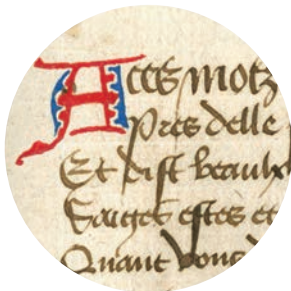 A ces motz
Pres delle
Et dist beaulx
Saiges estes et
Quant vous